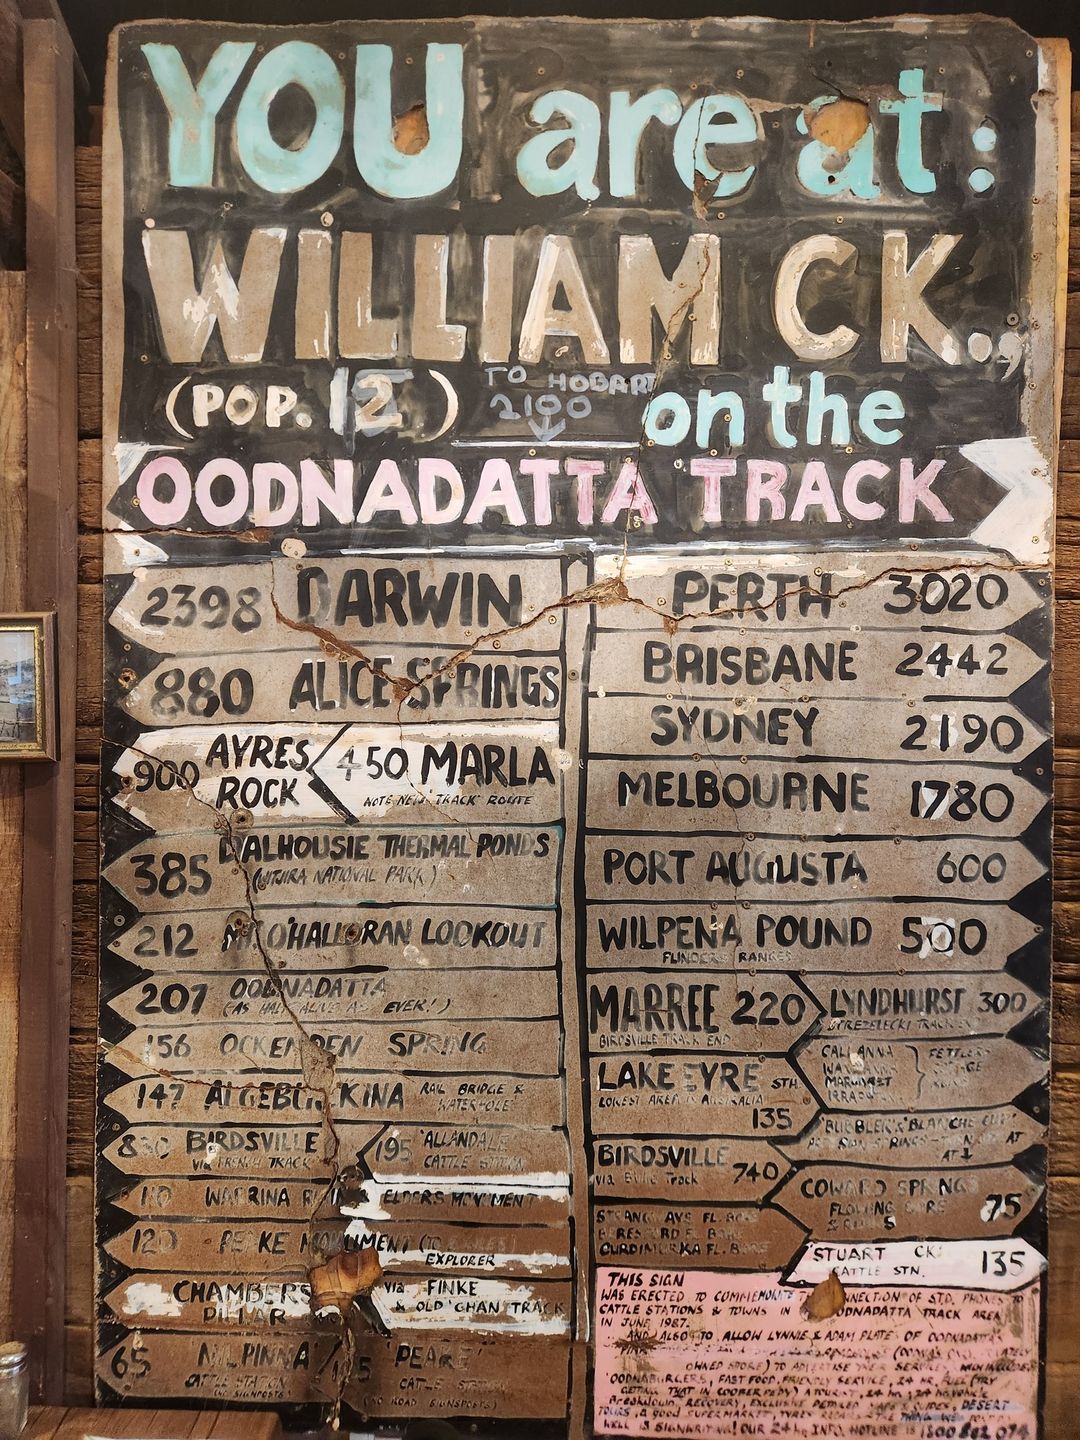 YOU are at:
WILLIAM CK.,
(POP. 12)
TO HOBART
2100
on the
OODNADATTA TRACK
2398 DARWIN
880 ALICE SPRINGS
900 AYRES ROCK
450 MARLA
NOTE NEW 'TRACK' ROUTE
385 DALHOUSIE THERMAL PONDS
(WITJIRA NATIONAL PARK)
212 MT O'HALLORAN LOOKOUT
207 OODNADATTA
(AS HALF ALIVE AS EVER!)
156 OCKENDEN SPRING
147 ALGEBUCKINA RAIL BRIDGE &
WATERHOLE
830 BIRDSVILLE
VIA FRENCH TRACK
195 'ALLANDALE'
CATTLE STATION
110 WARRINA ELDERS MONUMENT
120 PEAKE MONUMENT
EXPLORER
CHAMBERS
PILLAR
via FINKE
& OLD 'GHAN' TRACK
65 'NILPINNA'
CATTLE STATION
(NO SIGNPOSTS)
'PEAKE'
CATTLE STATION
(NO ROAD SIGNSPOSTS)
PERTH 3020
BRISBANE 2442
SYDNEY 2190
MELBOURNE 1780
PORT AUGUSTA 600
WILPENA POUND 500
FLINDERS RANGES
MARREE 220
BIRDSVILLE TRACK END
LYNDHURST 300
STREZELECKI TRACK END
LAKE EYRE STH
LOWEST AREA IN AUSTRALIA
135
CALLANNA
MARGARET
BIRDSVILLE
via Eyre Track
740
'BUBBLER' & 'BLANCHE CUP'
COWARD SPRINGS
FLOWING BORE
75
STRANGWAYS FL. BORE
BERESFORD FL. BORE
CURDIMURKA FL. BORE
STUART CK.
CATTLE STN.
135
THIS SIGN
WAS ERECTED TO COMMEMORATE THE CONNECTION OF STD. PHONES TO
CATTLE STATIONS & TOWNS IN THE OODNADATTA TRACK AREA
IN JUNE 1987.
.... AND ALSO TO ALLOW LYNNIE & ADAM PLATE OF OODNADATTA'S
OWNED STORE) TO ADVERTISE THEIR SERVICES, WHICH INCLUDES
'OODNABURGERS, FAST FOOD, FRIENDLY SERVICE, 24 HR. FUEL (TRY
GETTING THAT IN COOBER PEDY)
BREAKDOWN, RECOVERY, EXCLUSIVE DETAILED MAPS & GUIDES, DESERT
TOURS, A GOOD SUPERMARKET, TYRES REPAIRS & THE THING WE DON'T DO
WELL IS SIGNWRITING! OUR 24 hr INFO. HOTLINE IS 1800 882 074